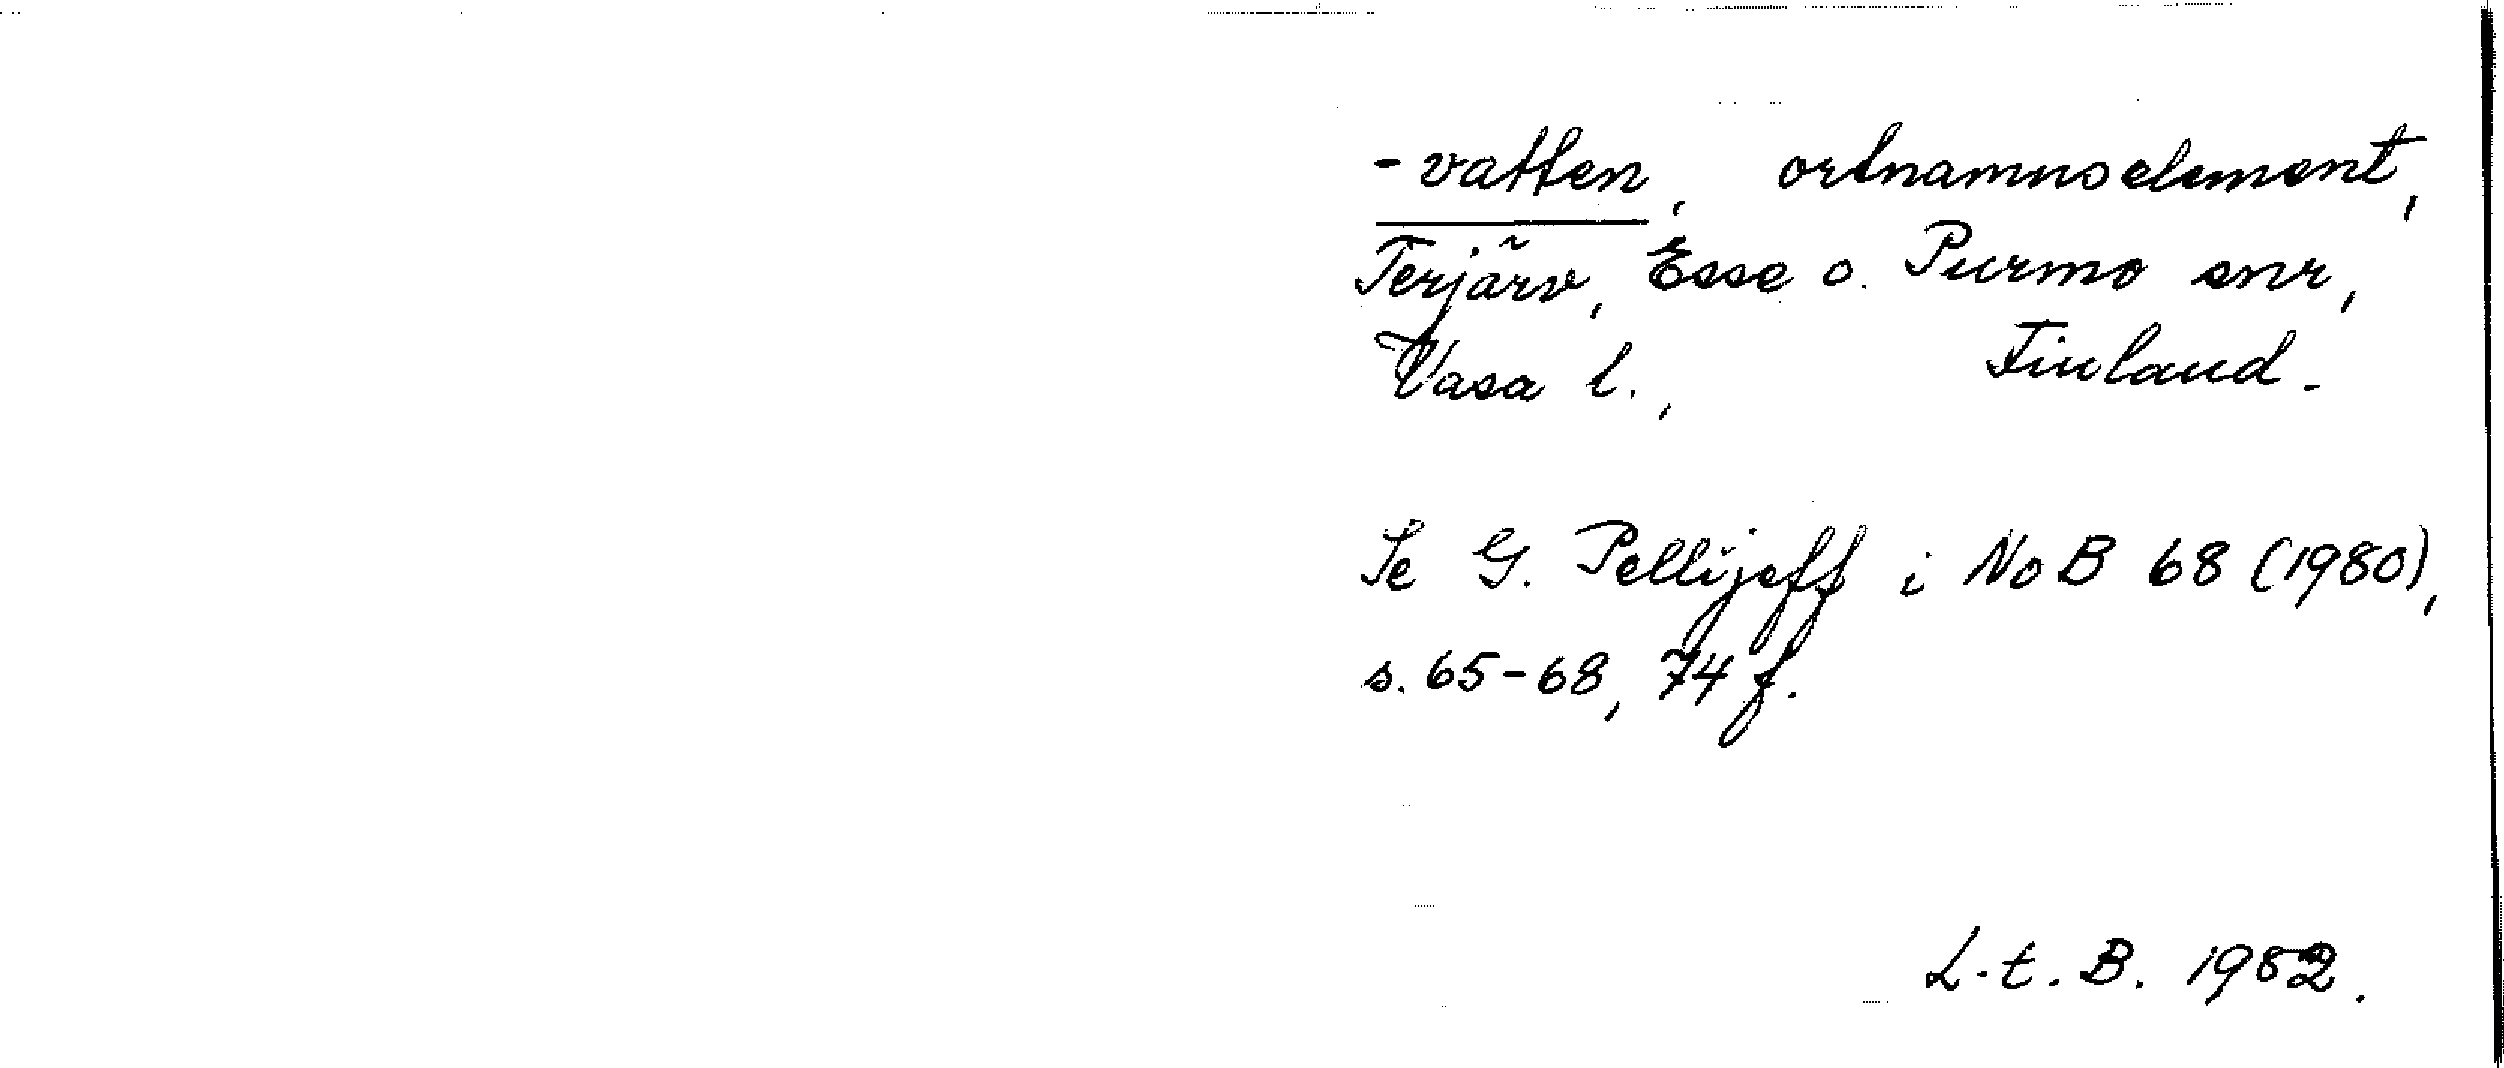 -vatten, ortnamnselement,
Terjärv, Esse o. Purmo snr,
Vasa l., Finland.
Se G. Pellijeff i NoB 68 (1980),
s. 65-68, 74 f.
L.t.B. 1982.